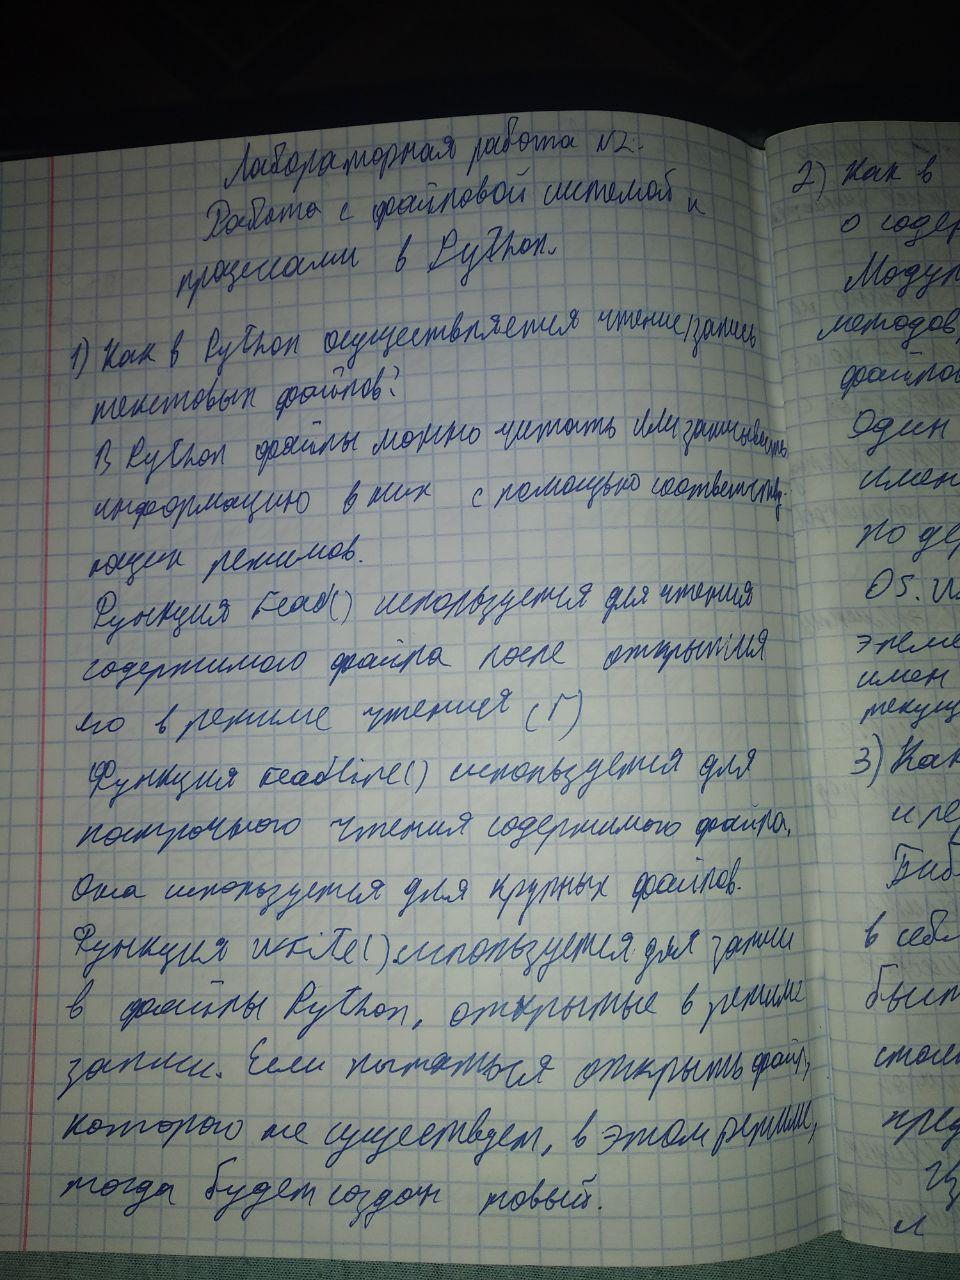 Лабораторная работа №2.
Работа с файловой системой и
процессами в Python.
1) Как в Python осуществляется чтение/запись
текстовых файлов?
В Python файлы можно читать или записывать
информацию в них с помощью соответству-
ющих режимов.
Функция read() используется для чтения
содержимого файла после открытия
его в режиме чтения (r)
Функция readline() используется для
построчного чтения содержимого файла.
Она используется для крупных файлов.
Функция write() используется для записи
в файлы Python, открытые в режиме
записи. Если пытаться открыть файл,
которого не существует, в этом режиме,
тогда будет создан новый.
2) Как в
о содер
Модул
методов,
файлов
Один
имен
по де
OS.
элеме
имен
текущ
3) Как
и
Биб
в себ
был
пред